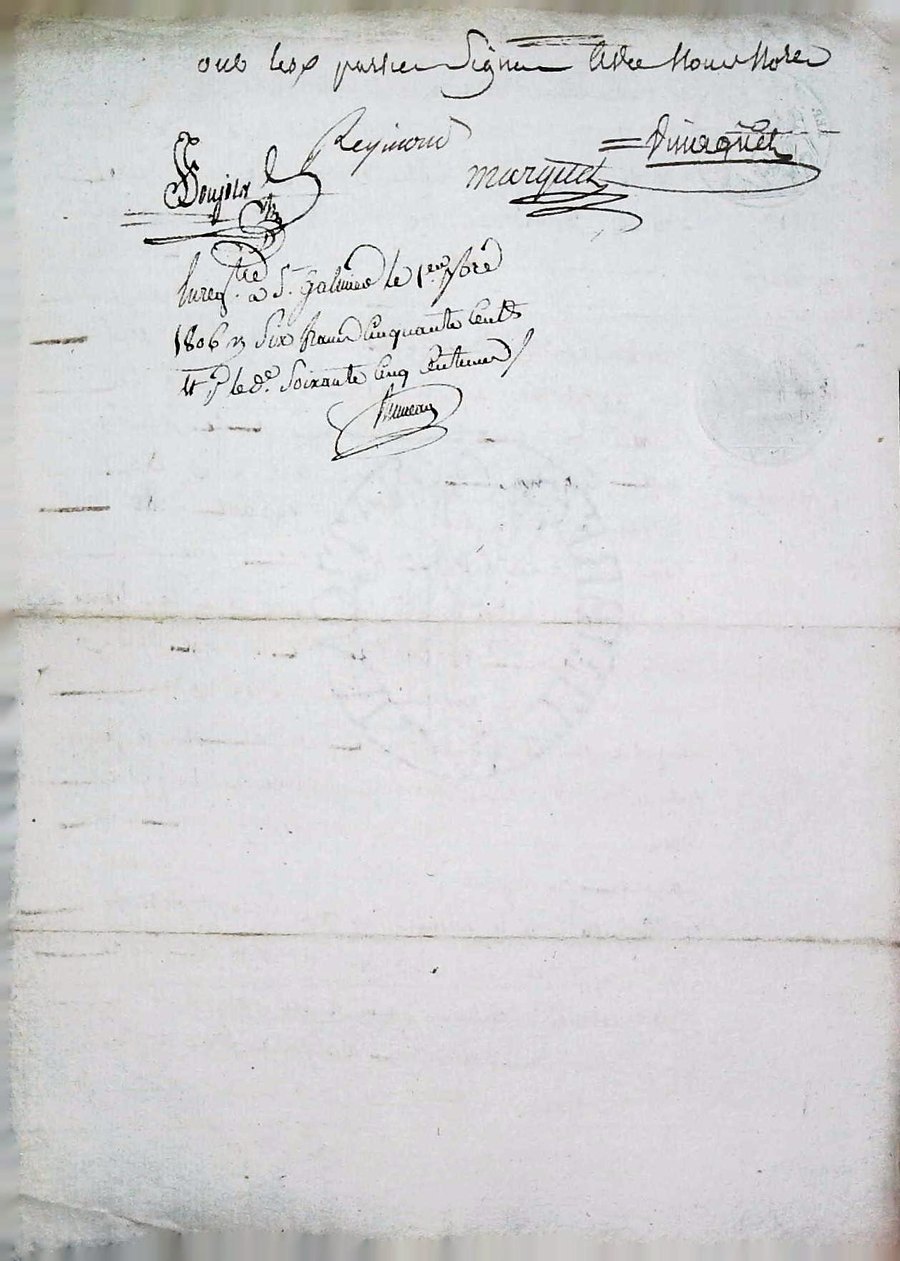 ont les parties Signé avec Nous Nore
Reymond Dumarquet
Soujols marquet
Enregtré à St. Galmier le 1er 7bre
1806 Six francs Cinquante Centes
le de. Soixante Cinq Centimes